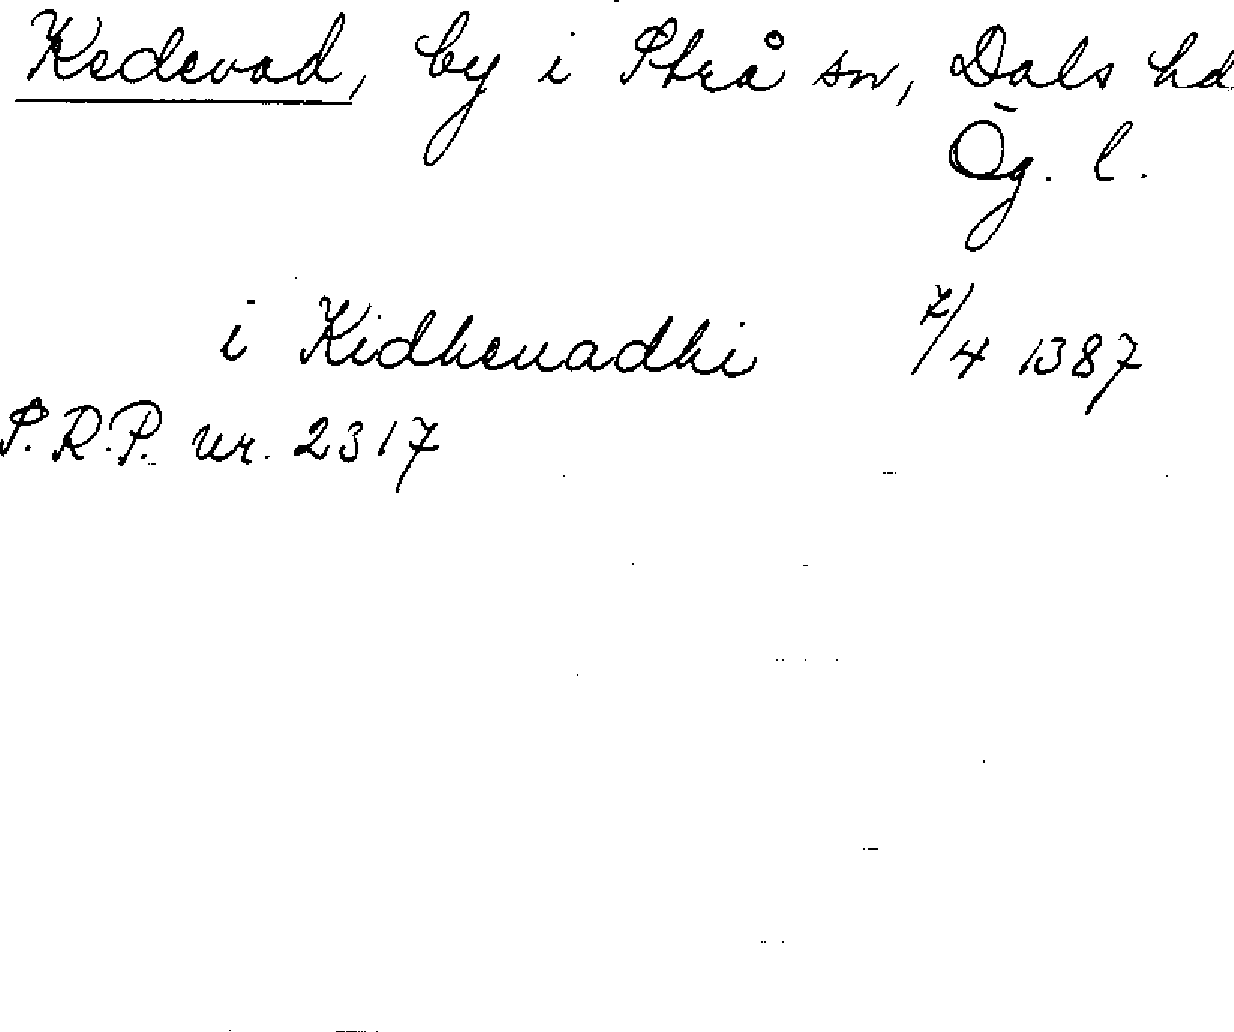 Kedevad, by i Strå sn, Dals hd
Ög. l.
i Kidheuadhi 7/4 1387
S.R.P. nr. 2317